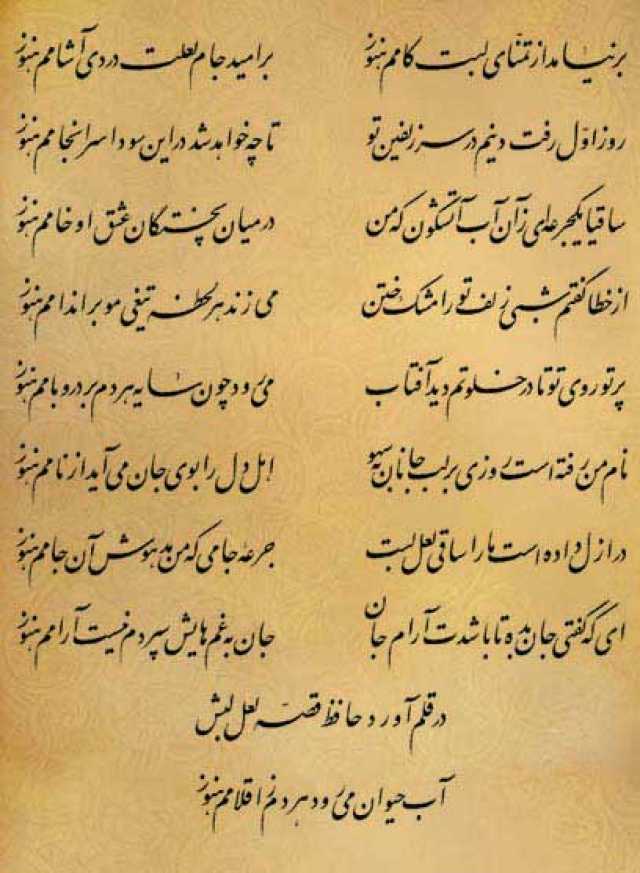 برنیامد از تمنّای لبت کامم هنوز    بر امید جام لعلت دردی آشامم هنوز
روز اوّل رفت دینم در سر زلفین تو    تا چه خواهد شد در این سودا سرانجامم هنوز
ساقیا یک جرعه‌ای زآن آب آتشگون که من    در میان پختگان عشق او خامم هنوز
از خطا گفتم شبی زلف تو را مشک ختن    می زند هر لحظه تیغی مو بر اندامم هنوز
پرتو روی تو تا در خلوتم دید آفتاب    می رود چون سایه هر دم بر در و بامم هنوز
نام من رفته است روزی بر لب جانان به سهو    اهل دل را بوی جان می آید از نامم هنوز
در ازل داده است ما را ساقی لعل لبت    جرعهٔ جامی که من مدهوش آن جامم هنوز
ای که گفتی جان بده تا باشدت آرام جان    جان به غم هایش سپردم نیست آرامم هنوز
در قلم آورد حافظ قصّه لعل لبش
آب حیوان می رود هر دم ز اقلامم هنوز